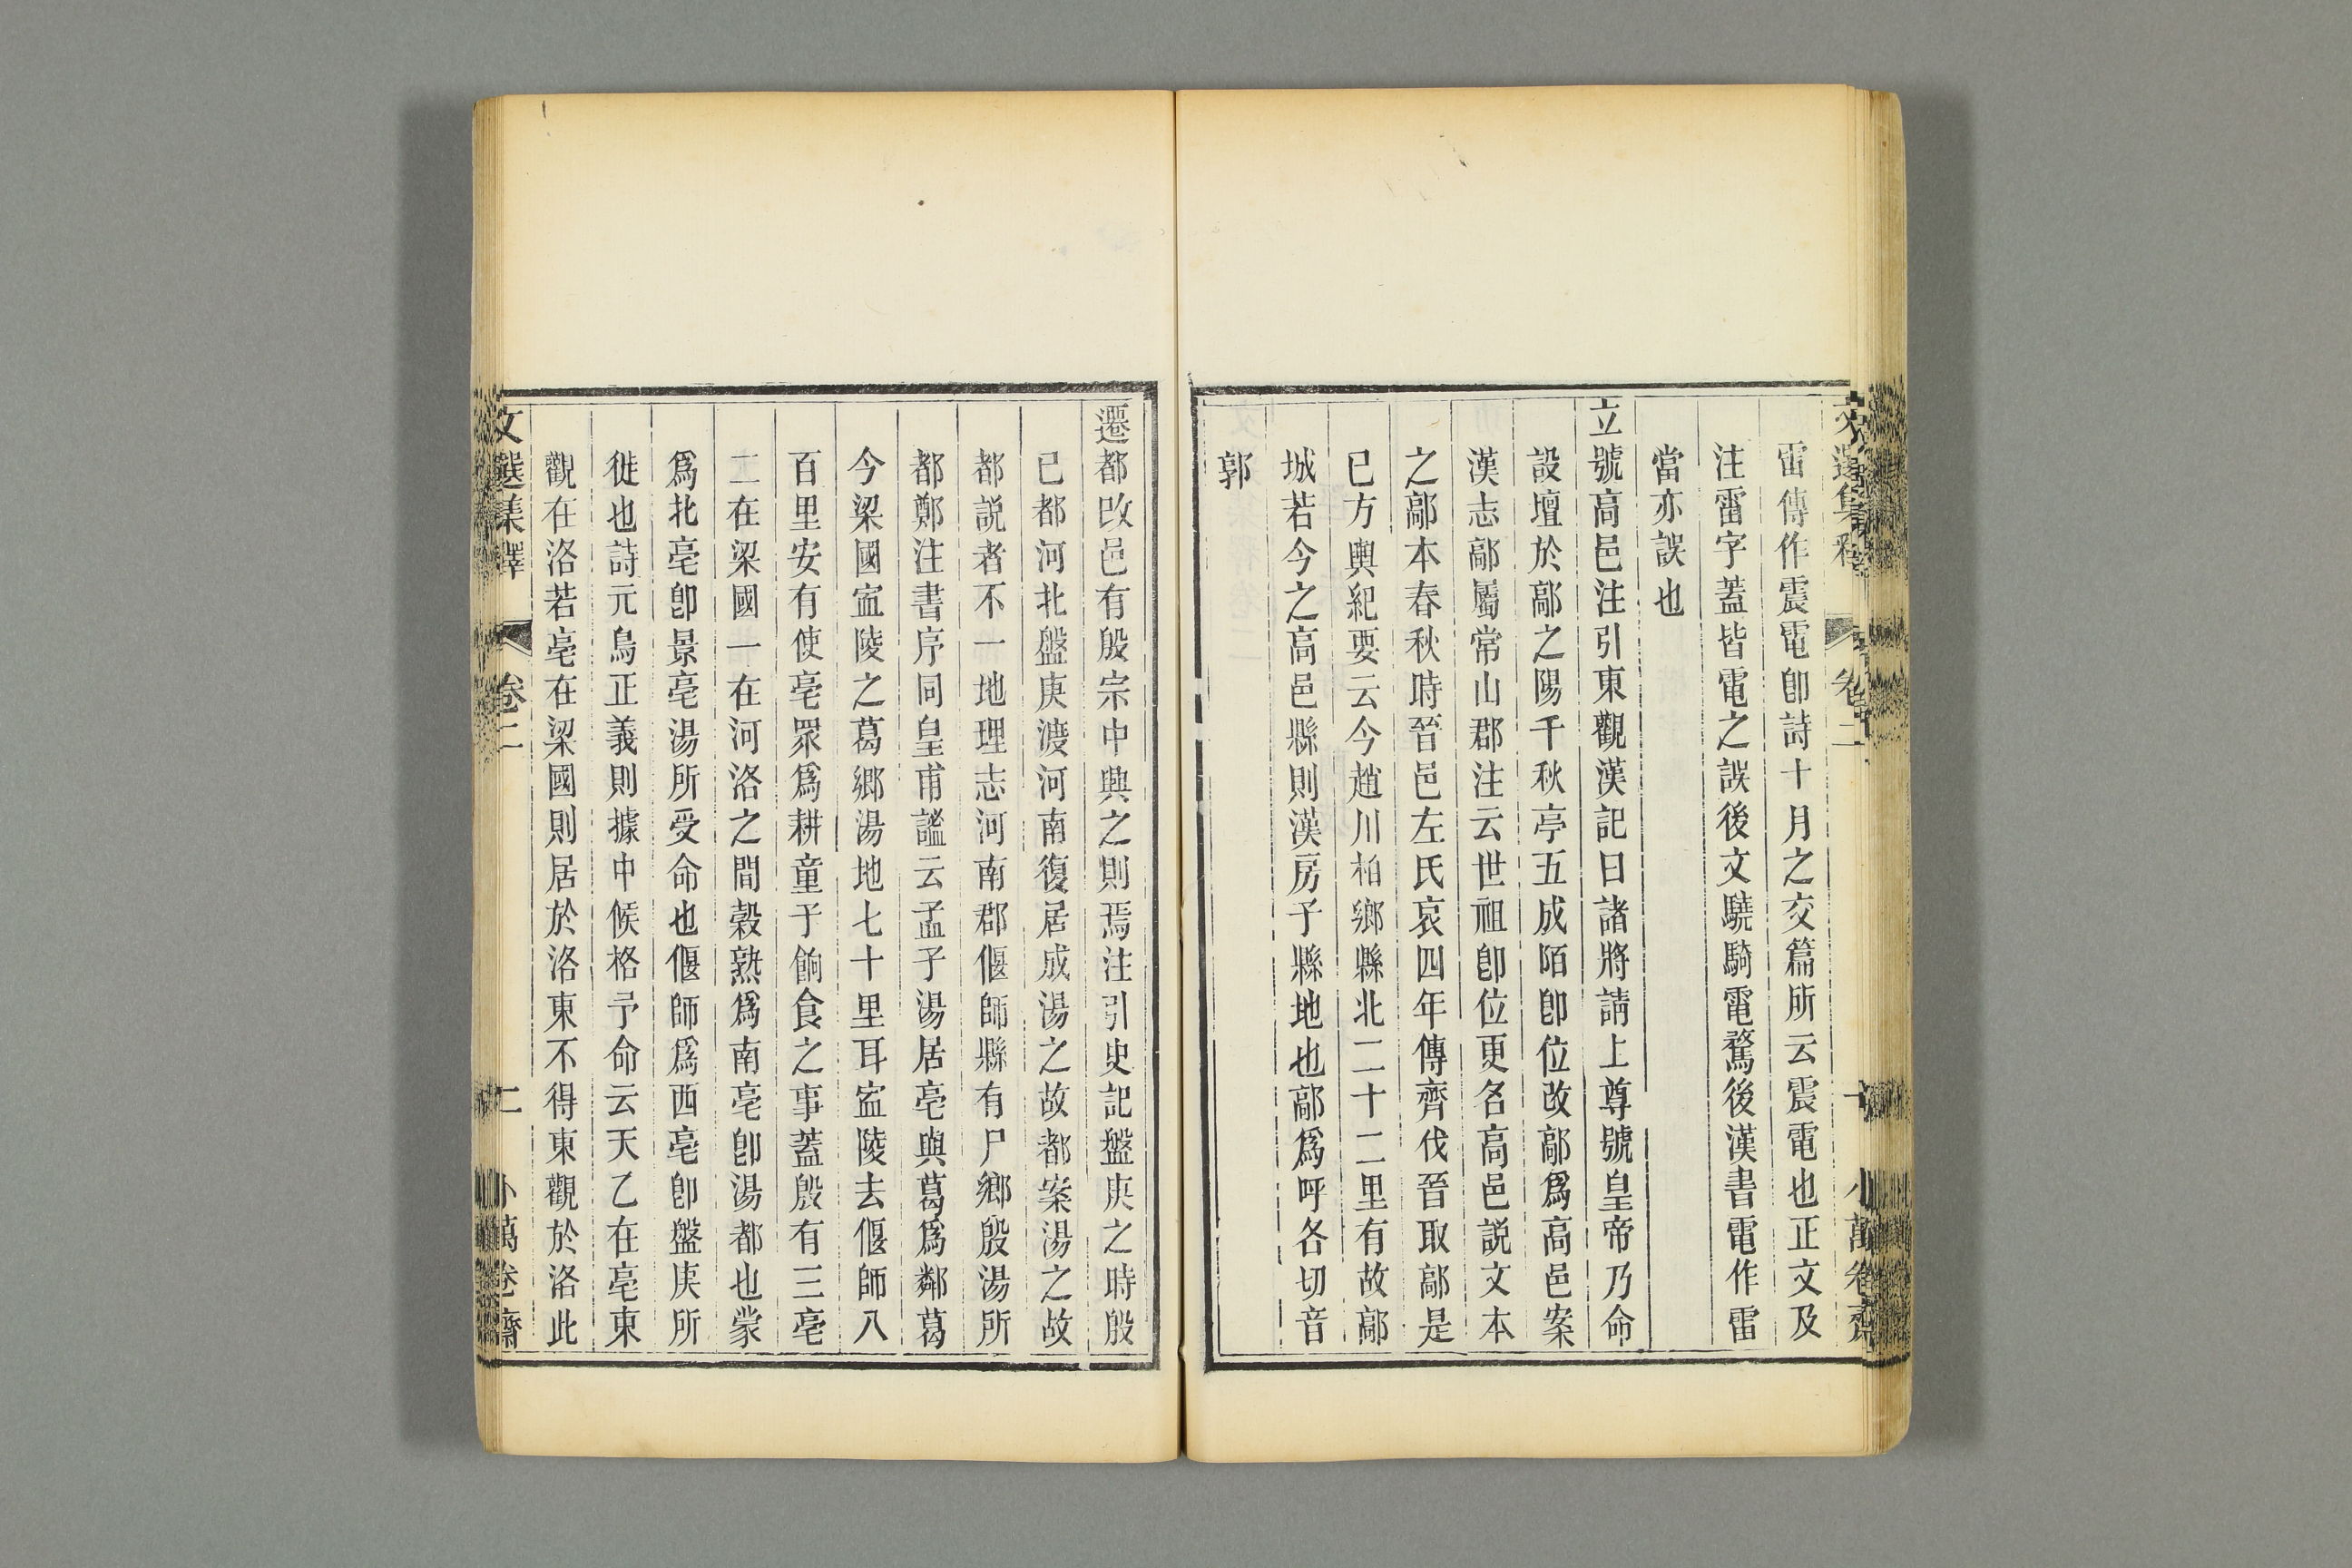 文選集釋 卷二 十 小萬卷齋
雷傳作震電卽詩十月之交篇所云震電也正文及
注雷字蓋皆電之誤後文驍騎電騖後漢書電作雷
當亦誤也
立號高邑注引東觀漢記曰諸將請上尊號皇帝乃命
設壇於鄗之陽千秋亭五成陌卽位改鄗爲高邑案
漢志鄗屬常山郡注云世祖卽位更名高邑説文本
之鄗本春秋時晉邑左氏哀四年傳齊伐晉取鄗是
已方輿紀要云今趙川柏鄉縣北二十二里有故鄗
城若今之高邑縣則漢房子縣地也鄗爲呼各切音
郭
遷都改邑有殷宗中興之則焉注引史記盤庚之時殷
已都河北盤庚渡河南復居成湯之故都案湯之故
都説者不一地理志河南郡偃師縣有尸鄉殷湯所
都鄭注書序同皇甫謐云孟子湯居亳與葛爲鄰葛
今梁國甯陵之葛鄉湯地七十里耳甯陵去偃師八
百里安有使亳眾爲耕童子餉食之事蓋殷有三亳
二在梁國一在河洛之間穀熟爲南亳卽湯都也蒙
爲北亳卽景亳湯所受命也偃師爲西亳卽盤庚所
徙也詩元鳥正義則據中候格予命云天乙在亳東
觀在洛若亳在梁國則居於洛東不得東觀於洛此
文選集釋 卷二 二 小萬卷齋